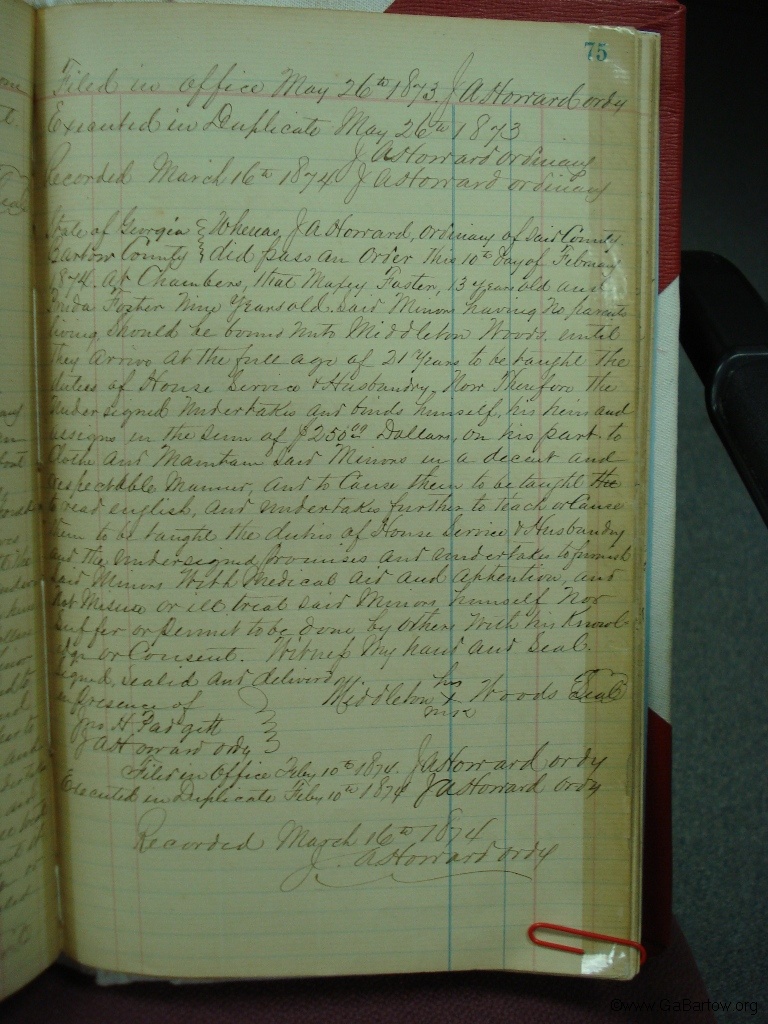 75
Filed in office May 26th 1873. J A Howard ordy
Executed in Duplicate May 26th 1873
J A Howard ordinary
Recorded March 16th 1874 J A Howard ordinary
State of Georgia } Whereas, J A Howard, ordinary of said County,
Bartow County } did pass an order this 10th day of February
1874. At Chambers, that Foster, 13 years old and
Foster Nine Years old. Said Minors having no parents
living, should be bound unto Middleton Woods, until
they arrive at the full age of 21 Years to be taught the
duties of House Service & Husbandry, Now Therefore the
undersigned undertakes and binds himself, his heirs and
assigns in the sum of $250.00 Dollars, on his part to
Clothe and Maintain said Minors in a decent and
respectable manner, and to Cause them to be taught the
to read english, and undertakes further to teach or Cause
them to be taught the duties of House Service & Husbandry
and the undersigned promises and undertakes to furnish
said Minors With Medical aid and Attention, and
not Misuse or ill treat said Minors himself Nor
Suffer or permit to be done by others With his Knowl
edge or Consent. Witness My hand and Seal.
Signed, Sealed and delivered
in Presence of
Middleton his X mark Woods Seal
Jno H. Padgett
J A Howard ordy
Filed in Office Feby 10th 1874. J A Howard ordy
Executed in Duplicate Feby 10th 1874 J A Howard ordy
Recorded March 16th 1874
J. A Howard ordy
©www.GaBartow.org